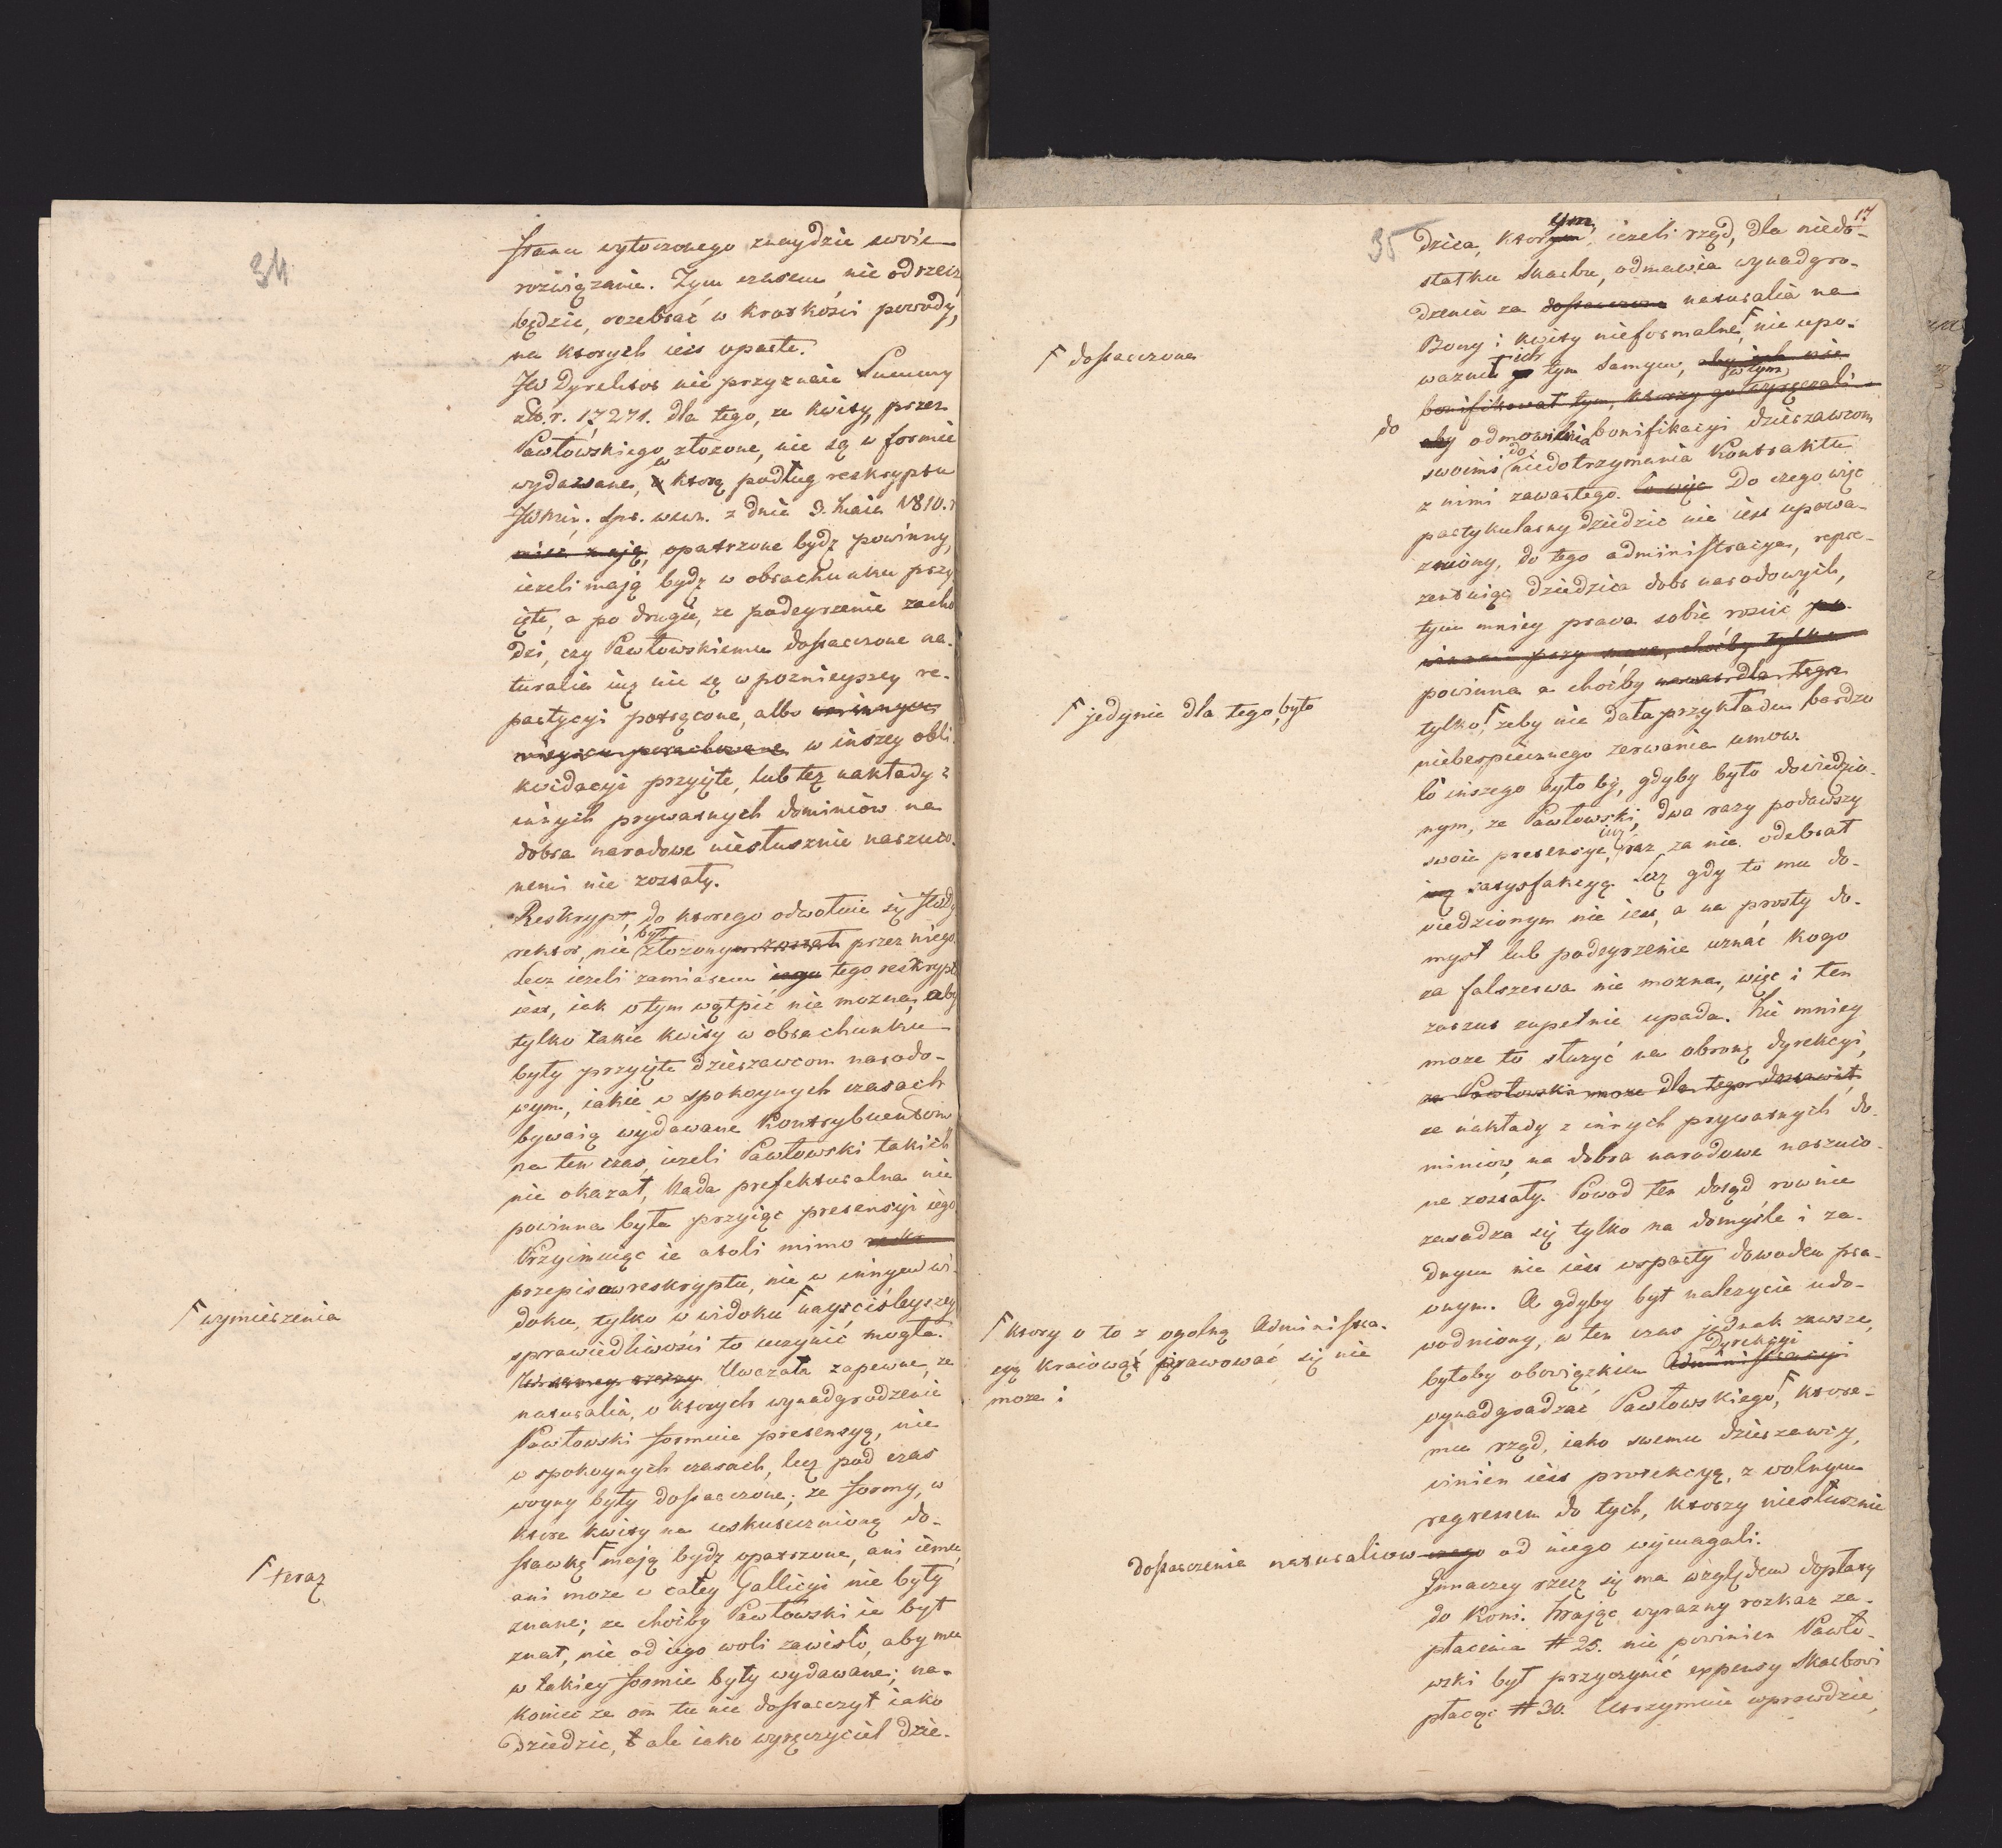 34
stanu wytoczonego znaydzie swoie
rozwiązanie. Tym czasem nie od rzeczy
będzie, rozebrać w krotkości powody,
na ktorych iest oparte.
JW Dyrektor nie przyznaie Summy
złt. r. 17,271. dla tego, że kwity, przez
Pawłowskiego złożone, nie są w formie
wydawane, w ktorą podług reskryptu
JWMin. Spr. wewn. z dnia 9. Maia 1810. r
opatrzone bydź powinny,
ieżeli mają bydź w obrachunku przy-
ięte, a po drugie, że podeyrzenie zacho
dzi, czy Pawłowskiemu dostarczone na-
turalia iuż nie są w poznieyszey re-
partycyi potrącone, albo w innym
mieyscu porachowane w inszey obli-
kwidacyi przyięte, lub też nakłady z
innych prywatnych dominiów na
dobra narodowe niesłusznie narzuco-
nemi nie zostały.
Reskrypt, do ktorego odwołuie się JWDy
rektor, nie był złożonym został przez niego.
Lecz ieżeli zamiarem iego tego reskryptu
iest, iak o tym wątpić nie można, aby
tylko takie kwity w obrachunku
były przyięte dzierżawcom narodo-
wym, iakie w spokoynych czasach
bywaią wydawane Kontrybuentom
na ten czas, ieżeli Pawłowski takich
nie okazał, Rada prefekturalna nie
powinna była przyiąć pretensyi iego
Przyimuiąc ie atoli mimo
przepisów reskryptu, nie w innym wi-
doku, tylko w widoku F nayściśleyszey
F wymierzenia
sprawiedliwości to uczynić mogła.
W samey rzeczy Uważała zapewne, że
naturalia, o ktorych wynadgrodzenie
Pawłowski formuie pretensyą, nie
w spokoynych czasach, lecz pod czas
woyny były dostarczone; że formy, w
ktore kwity na uskutecznioną do-
stawkę F mają bydź opatrzone, ani iemu,
F teraz
ani może w całey Gallicyi nie były
znane; że choćby Pawłowski ie był
znał, nie od iego woli zawisło, aby mu
w takiey formie były wydawane; na-
koniec że on tu nie dostarczył iako
dziedzic, ale iako wyręczyciel dzie-
17
35
dzica, ktorym, ieżeli rząd, dla niedo-
statku Skarbu, odmawia wynadgro-
dzenia za dostarczone naturalia na
Bony i kwity nieformalne, F nie upo-
F dostarczone
ważnił ich tym samym, aby ich nie
bonifikował tym, ktorzy go wyręczali
do aby odmowienia bonifikacyi dzierżawcom
swoim i do niedotrzymania Kontraktu
z nimi zawartego. Co więc Do czego więc
partykularny dziedzic nie iest upowa-
żniony, do tego administracya, repre-
zentuiąc dziedzica dobr narodowych,
tym mniey prawa sobie rościć
powinna a choćby nawet dla tego
tylko F żeby nie dała przykładu bardzo
F jedynie dla tego, było
niebezpiecznego zerwania umow.
Co inszego było by, gdyby było dowiedzio-
nym, że Pawłowski, dwa razy podawszy
swoie pretensye, iuż raz za nie odebrał
iuż satysfakcyą. Lecz gdy to mu do-
wiedzionym nie iest, a na prosty do-
mysł lub podeyrzenie uznać kogo
za fałszerza nie można, więc i ten
zarzut zupełnie upada. Nie mniey
może to służyć na obronę dyrekcyi,
że Pawłowski może dla tego dostawił,
że nakłady z innych prywatnych do-
miniów na dobra narodowe narzuco-
ne zostały. Powod ten dotąd rownie
zasadza się tylko na domyśle i ża-
dnym nie iest wsparty dowodem pra-
wnym. A gdyby był należycie udo-
wodniony, w ten czas jednak zawsze,
byłoby obowiązkiem Dyrekcyi Administracyi
F ktory o to z ogolną Administra-
cyą kraiową prawować się nie
może i
wynadgradzać Pawłowskiego, F ktore-
mu rząd, iako swemu dzierżawcy,
winien iest protekcyą, z wolnym
regressem do tych, ktorzy niesłusznie
dostarczenia naturaliow czego od niego wymagali.
Jnnaczey rzecz się ma względem dopłaty
do koni. Mając wyrazny rozkaz za-
płacenia # 25. nie powinien Pawło-
wski był przyczynić expensy Skarbowi
płacąc # 30. Utrzymuie wprawdzie,